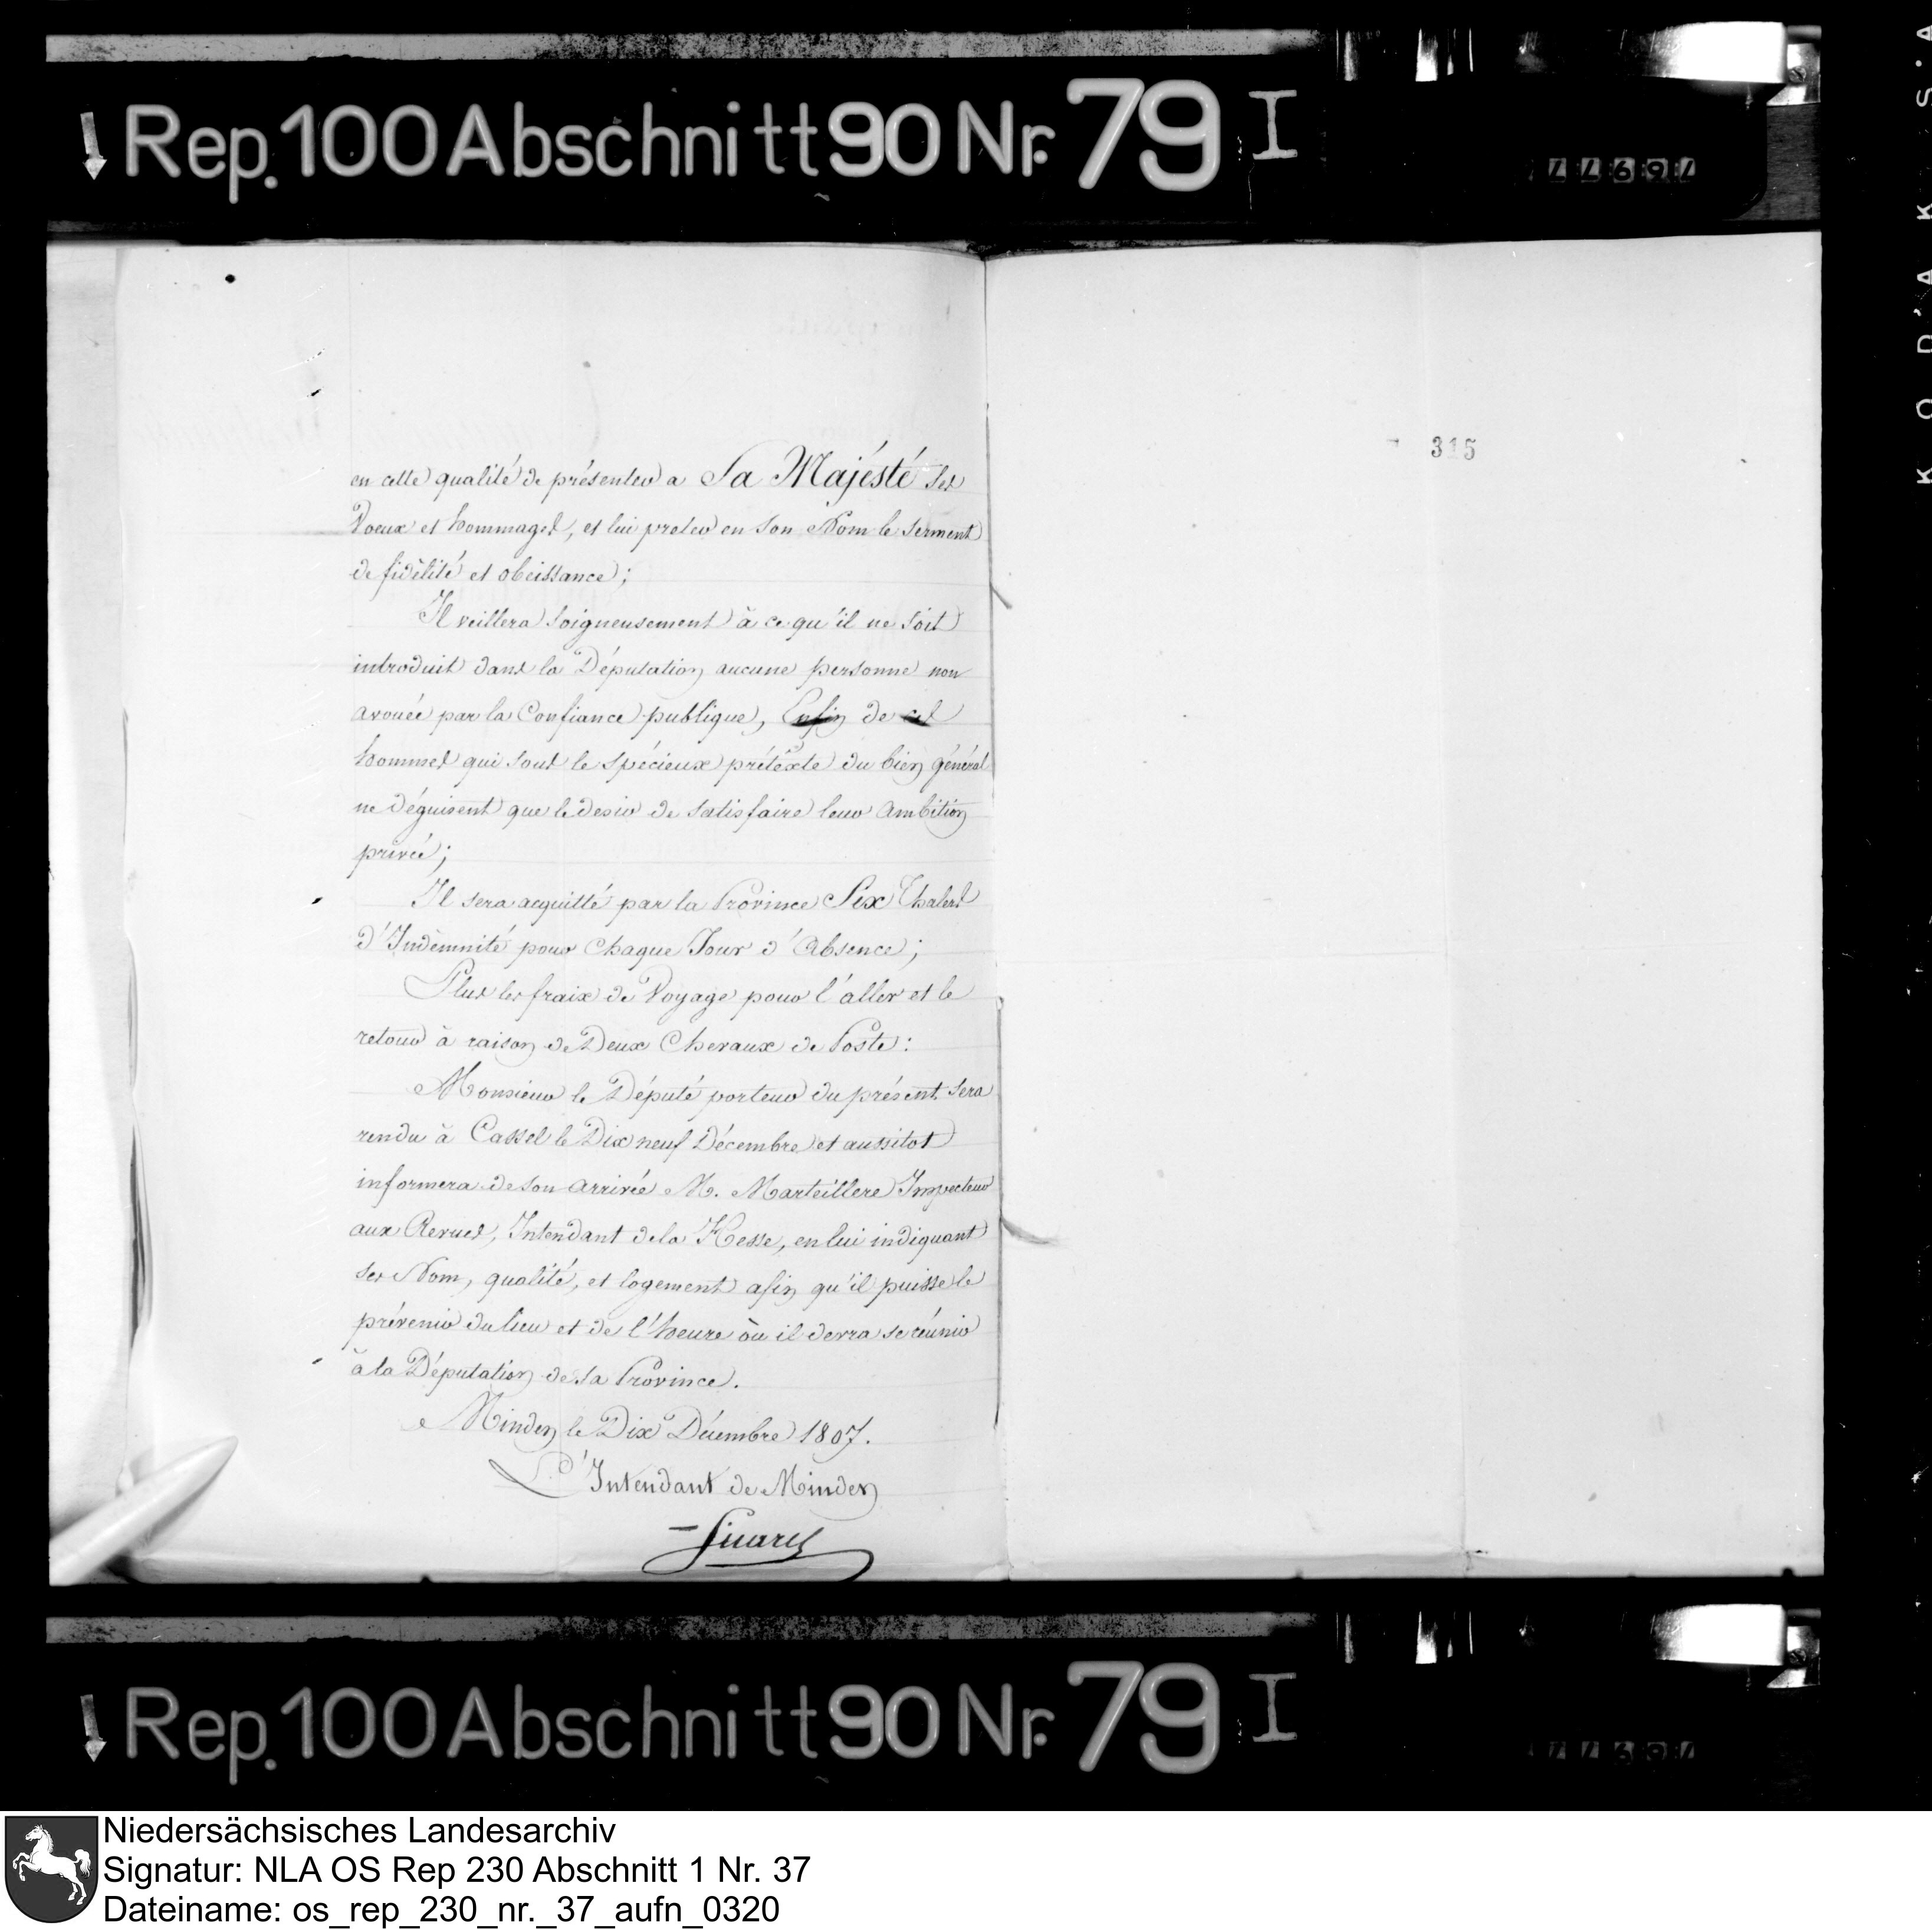 Rep. 100 Abschnitt 90 Nr. 79 I
77691
315
en cette qualité de présenter a Sa Majésté ses
Voeux et hommages, et lui preter en son Nom le serment
de fidèlité et obeissance;
Il veillera soigneusement à ce qu'il ne soit
introduit dans la Députation aucune personne non
avouée par la Confiance publique, Enfin de ces
hommes qui sous le spécieux prétéxte du bien général
ne déguisent que le desir de satisfaire leur ambition
privée;
Il sera acquitté par la Province Six Thalers
d'Indèmnité pour Chaque Jour d'Absence;
Plus les fraix de Voyage pour l'aller et le
retour à raison de Deux Chevaux de Poste:
Monsieur le Député porteur du présent sera
rendu à Cassel le Dix neuf Décembre et aussitot
informera de son arrivée M. Marteillere Inspecteur
aux Revues, Intendant de la Hesse, en lui indiquant
ses Nom, qualité, et logement afin qu'il puisse le
prévenir du lieu et de l'heure òu il devra se réunir
à la Députation de sa Province.
Minden le Dix Décembre 1807.
L'Intendant de Minden
Rep. 100 Abschnitt 90 Nr. 79 I
77691
KODAK S.A
Niedersächsisches Landesarchiv
Signatur: NLA OS Rep 230 Abschnitt 1 Nr. 37
Dateiname: os_rep_230_nr._37_aufn_0320